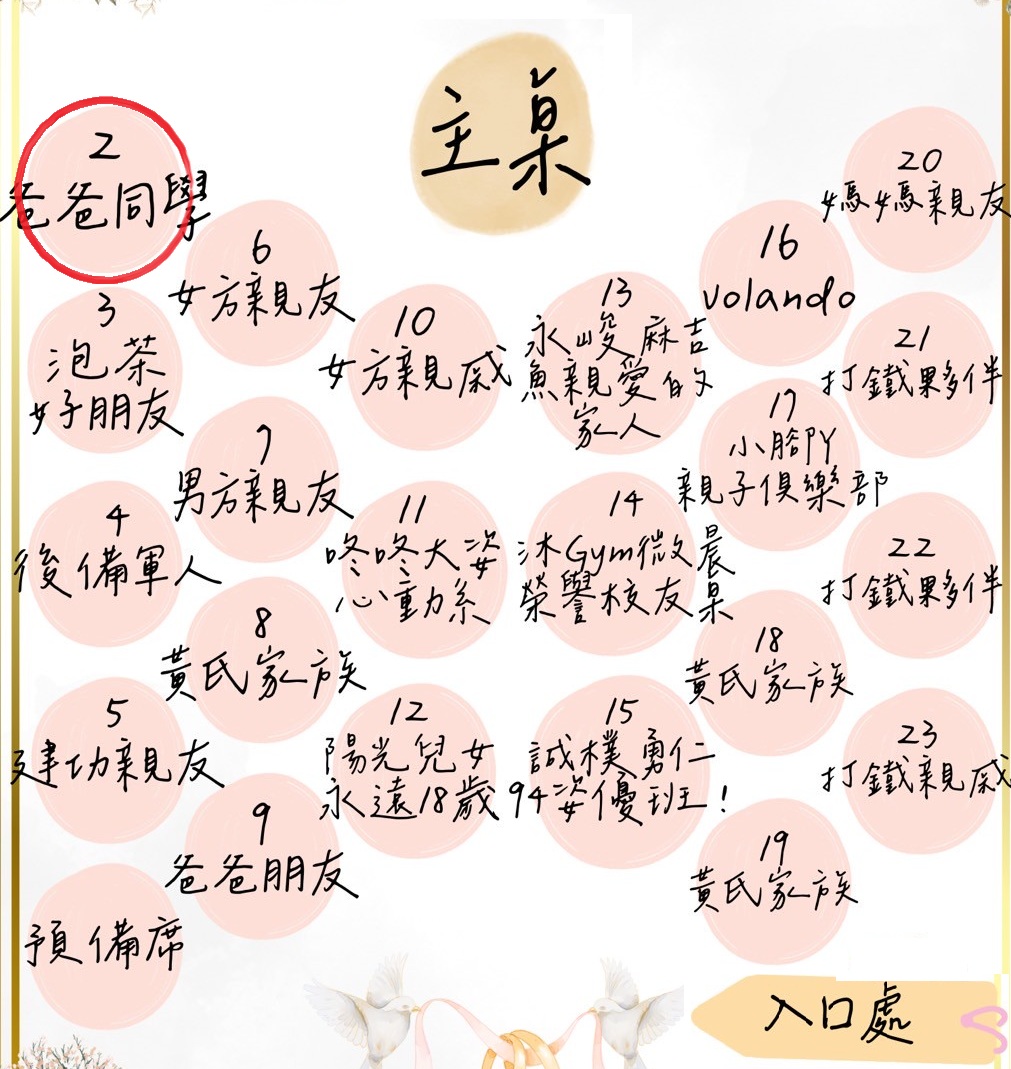 主桌
2
爸爸同學
3
泡茶
好朋友
4
後備軍人
5
建功親友
預備席
6
女方親友
7
男方親友
8
黃氏家族
9
爸爸朋友
10
女方親戚
11
咚咚大姿
心動系
12
陽光兒女
永遠18歲
13
永峻麻吉
魚親愛的
家人
14
沐Gym微晨
榮譽校友桌
15
誠樸勇仁
94姿優班!
16
volando
17
小腳丫
親子俱樂部
18
黃氏家族
19
黃氏家族
20
媽媽親友
21
打鐵夥伴
22
打鐵夥伴
23
打鐵親戚
入口處